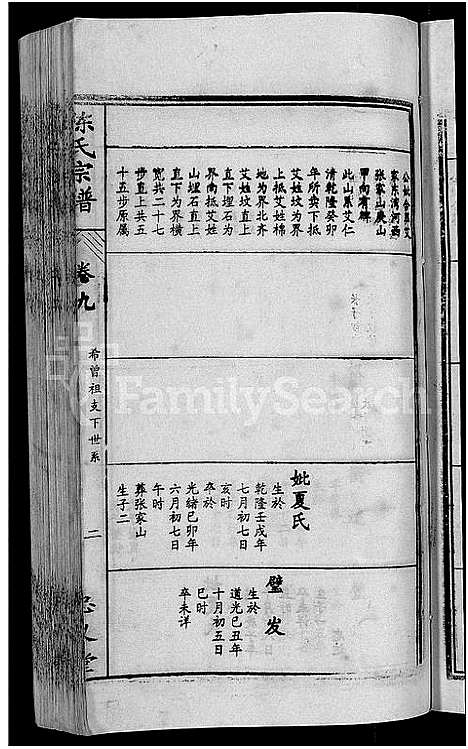 公妣合葬艾
家东湾河西
张家山庚山
甲向有碑
此山系艾仁
年所卖下抵
清乾隆癸卯
艾姓坟为界
上抵艾姓棉
地为界北齐
艾姓坟直上
直下埋石为
界南抵艾姓
山埋石直上
直下为界横
宽共二十七
步直上共五
十五步原属
妣夏氏
生於
乾隆壬戌年
七月初七日
亥时
卒於
光绪己卯年
六月初七日
午时
葬张家山
生子二
璧发
生於
道光己丑年
十月初五日
巳时
卒未详
陈氏宗谱
卷九
希曾祖支下世系
二
忠义堂
FamilySearch